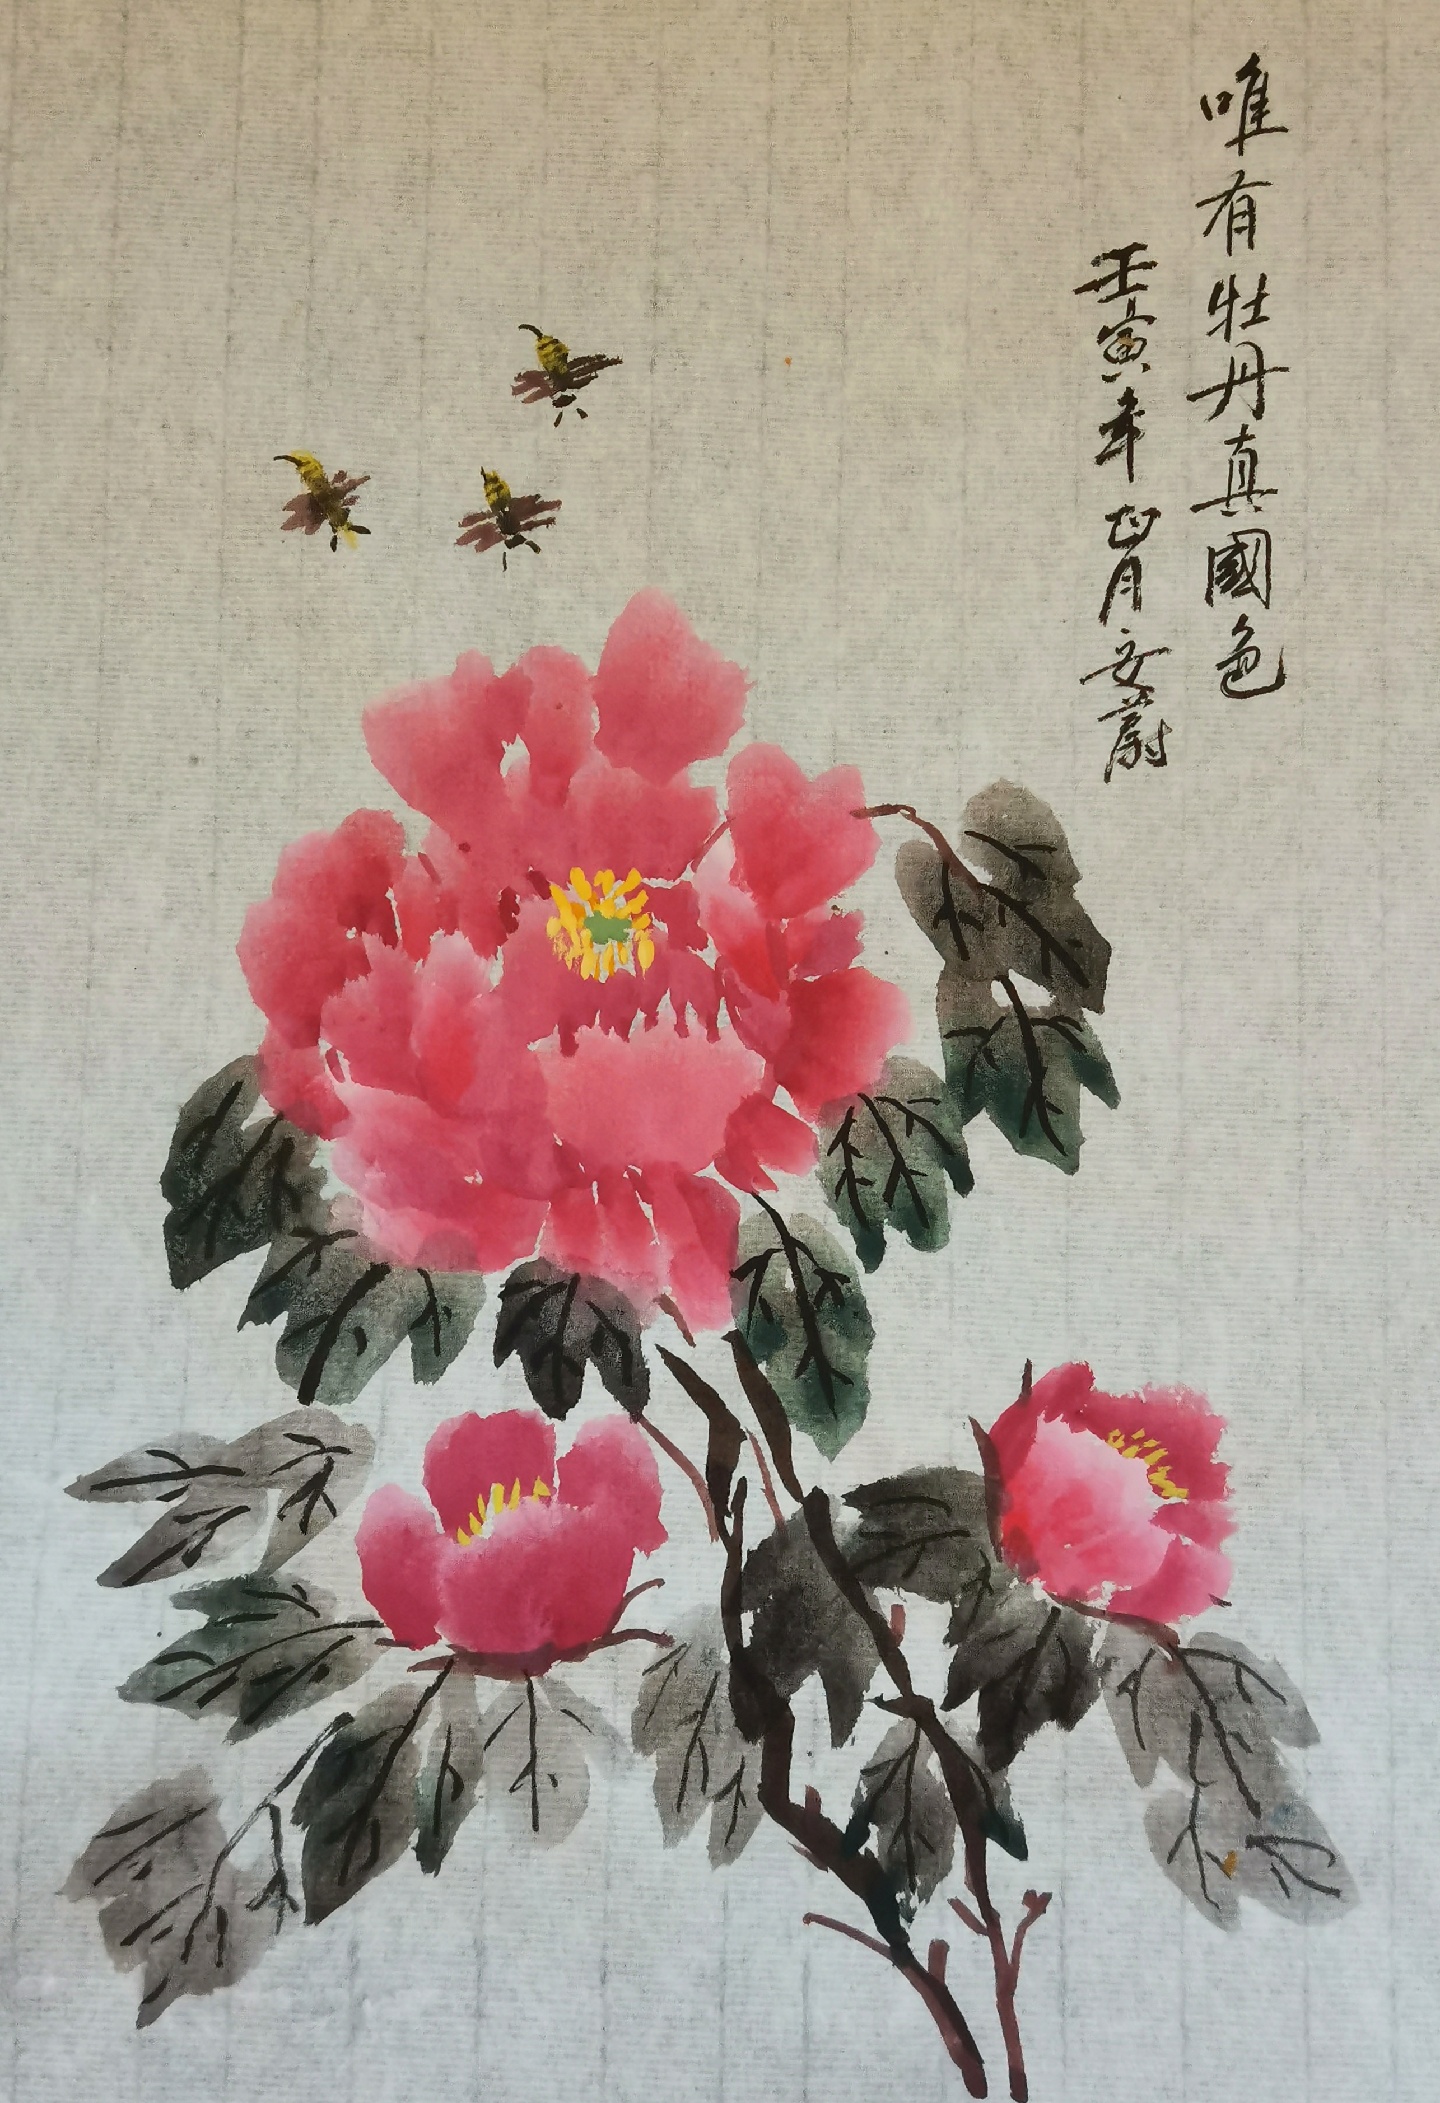 唯有牡丹真國色
壬寅年正月文蔚